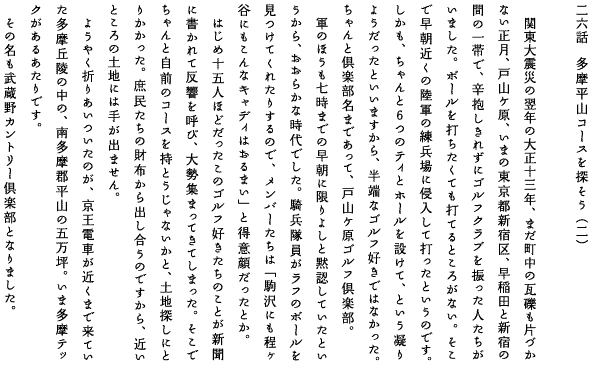 二六話　多摩平山コースを探そう（二）
　関東大震災の翌年の大正十三年、まだ町中の瓦礫も片づか
ない正月、戸山ケ原、いまの東京都新宿区、早稲田と新宿の
間の一帯で、辛抱しきれずにゴルフクラブを振った人たちが
いました。ボールを打ちたくても打てるところがない。そこ
で早朝近くの陸軍の練兵場に侵入して打ったというのです。
しかも、ちゃんと６つのティとホールを設けて、という凝り
ようだったといいますから、半端なゴルフ好きではなかった。
ちゃんと倶楽部名まであって、戸山ケ原ゴルフ倶楽部。
　軍のほうも七時までの早朝に限りよしと黙認していたとい
うから、おおらかな時代でした。騎兵隊員がラフのボールを
見つけてくれたりするので、メンバーたちは「駒沢にも程ヶ
谷にもこんなキャディはおるまい」と得意顔だったとか。
　はじめ十五人ほどだったこのゴルフ好きたちのことが新聞
に書かれて反響を呼び、大勢集まってきてしまった。そこで
ちゃんと自前のコースを持とうじゃないかと、土地探しにと
りかかった。庶民たちの財布から出し合うのですから、近い
ところの土地には手が出ません。
　ようやく折りあいついたのが、京王電車が近くまで来てい
た多摩丘陵の中の、南多摩郡平山の五万坪。いま多摩テッ
クがあるあたりです。
　その名も武蔵野カントリー倶楽部となりました。